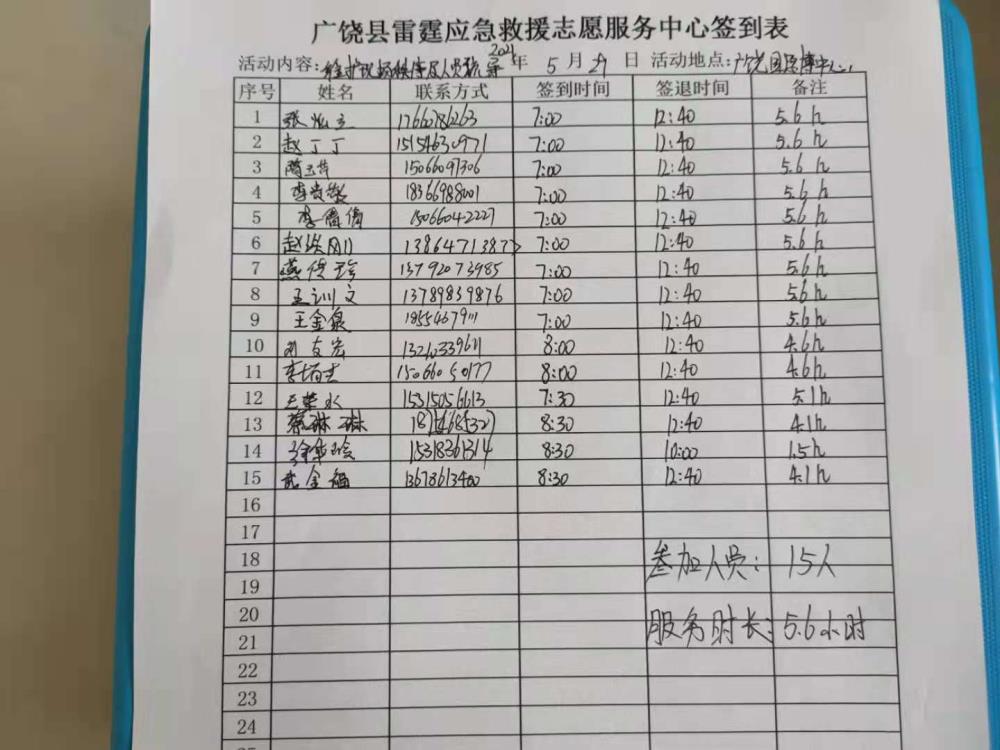 广饶县雷霆应急救援志愿服务中心签到表
活动内容:维护现场秩序及人员 2021年 5月29日 活动地点:广饶国际博
序号 姓名 联系方式 签到时间 签退时间 备注
1 张 7:00 12:40 5.6h
2 赵丁丁 15154630971 7:00 12:40 5.6h
3 15066097306 7:00 12:40 5.6h
4 李 18366988001 7:00 12:40 5.6h
5 李倩 15066042227 7:00 12:40 5.6h
6 赵洪刚 13864713877 7:00 12:40 5.6h
7 燕俊珍 13792073985 7:00 12:40 5.6h
8 王训文 13789839876 7:00 12:40 5.6h
9 王金泉 7:00 12:40 5.6h
10 刘友宏 8:00 12:40 4.6h
11 李 15066050177 8:00 12:40 4.6h
12 王荣水 15315056613 7:30 12:40 5.1h
13 蔡琳琳 8:30 12:40 4.1h
14 徐 15318361314 8:30 10:00 1.5h
15 武金福 13678613400 8:30 12:40 4.1h
16
17
18 参加人员: 15人
19
20
21 服务时长: 5.6小时
22
23
24